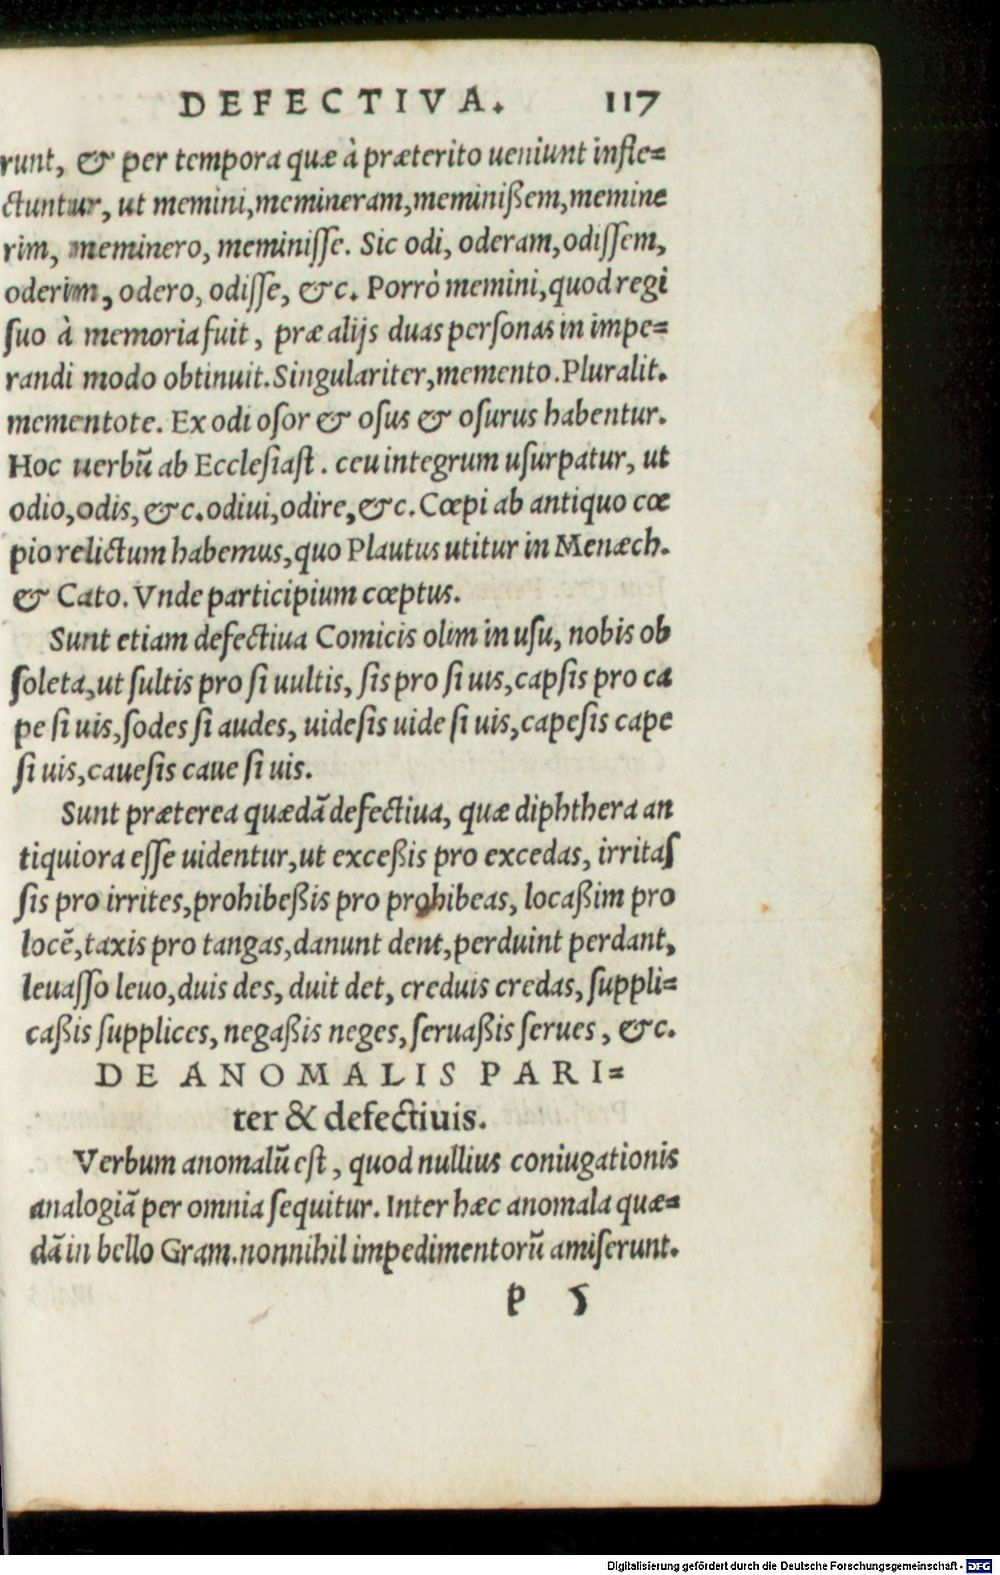 DEFECTIVA. 117
runt, & per tempora quæ à præterito ueniunt infle=
ctuntur, ut memini, memineram, meminißem, memine
rim, meminero, meminiſſe. Sic odi, oderam, odiſſem,
oderim, odero, odiſſe, &c. Porrò memini, quod regi
ſuo à memoria fuit, præ alijs duas perſonas in impe=
randi modo obtinuit. Singulariter, memento. Pluralit.
mementote. Ex odi oſor & oſus & oſurus habentur.
Hoc uerbū ab Eccleſiaſt. ceu integrum uſurpatur, ut
odio, odis, &c. odiui, odire, &c. Cœpi ab antiquo cœ
pio relictum habemus, quo Plautus utitur in Menæch.
& Cato. Vnde participium cœptus.
Sunt etiam defectiua Comicis olim in uſu, nobis ob
ſoleta, ut ſultis pro ſi uultis, ſis pro ſi uis, capſis pro ca
pe ſi uis, ſodes ſi audes, uideſis uide ſi uis, capeſis cape
ſi uis, caueſis caue ſi uis.
Sunt præterea quædā defectiua, quæ diphthera an
tiquiora eſſe uidentur, ut exceßis pro excedas, irritaſ
ſis pro irrites, prohibeßis pro prohibeas, locaßim pro
locē, taxis pro tangas, danunt dent, perduint perdant,
leuaſſo leuo, duis des, duit det, creduis credas, ſuppli=
caßis ſupplices, negaßis neges, ſeruaßis ſerues, &c.
DE ANOMALIS PARI=
ter & defectiuis.
Verbum anomalū eſt, quod nullius coniugationis
analogiā per omnia ſequitur. Inter hæc anomala quæ=
dā in bello Gram. nonnihil impedimentorū amiſerunt.
P 5
Digitalisierung gefördert durch die Deutsche Forschungsgemeinschaft - DFG